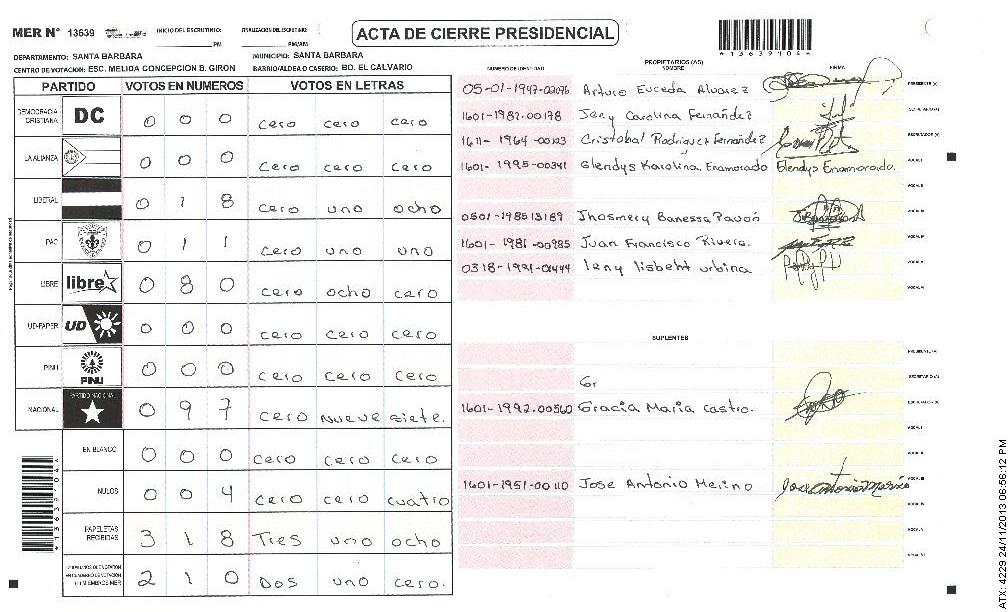 MER N° 13639
INICIO DEL ESCRUTINIO: PM
FINALIZACION DEL ESCRUTINIO: PM/AM
ACTA DE CIERRE PRESIDENCIAL
*136391044*
DEPARTAMENTO: SANTA BARBARA
MUNICIPIO: SANTA BARBARA
CENTRO DE VOTACION: ESC. MELIDA CONCEPCION B. GIRON
BARRIO/ALDEA O CASERIO: BO. EL CALVARIO
PARTIDO VOTOS EN NUMEROS VOTOS EN LETRAS
DEMOCRACIA CRISTIANA DC 0 0 0 cero cero cero
LA ALIANZA 0 0 0 cero cero cero
LIBERAL 0 1 8 cero uno ocho
PAC 0 1 1 cero uno uno
LIBRE libre 0 8 0 cero ocho cero
UD-FAPER UD 0 0 0 cero cero cero
PINU PINU 0 0 0 cero cero cero
NACIONAL PARTIDO NACIONAL 0 9 7 cero nueve siete.
EN BLANCO 0 0 0 cero cero cero
NULOS 0 0 4 cero cero cuatro
PAPELETAS RECIBIDAS 3 1 8 Tres uno ocho
2 1 0 Dos uno cero.
NUMERO DE IDENTIDAD PROPIETARIOS (AS) NOMBRE FIRMA
Arturo Euceda Alvarez PRESIDENTE (A)
1601-1982.00178 Jeny Carolina Fernández SECRETARIO (A)
1611-1964-00123 Cristobal Rodriguez Fernández ESCRUTADOR (A)
1601-1995-00341 Glendys Karolina. Enamorado Glendys Enamorado. VOCAL I
VOCAL II
0501-198513189 Jhosmery Banessa Pavón VOCAL III
1601-1981-00985 Juan Francisco Rivera. VOCAL IV
0318-1991-01444 leny lisbeht urbina VOCAL V
VOCAL VI
SUPLENTES
PRESIDENTE (A)
Gr SECRETARIO (A)
1601-1992.00560 Gracia Maria Castro. ESCRUTADOR (A)
VOCAL I
VOCAL II
1601-1951-00110 Jose Antonio Merino VOCAL III
VOCAL IV
VOCAL V
VOCAL VI
ATX: 4229 24/11/2013 06:56:12 PM